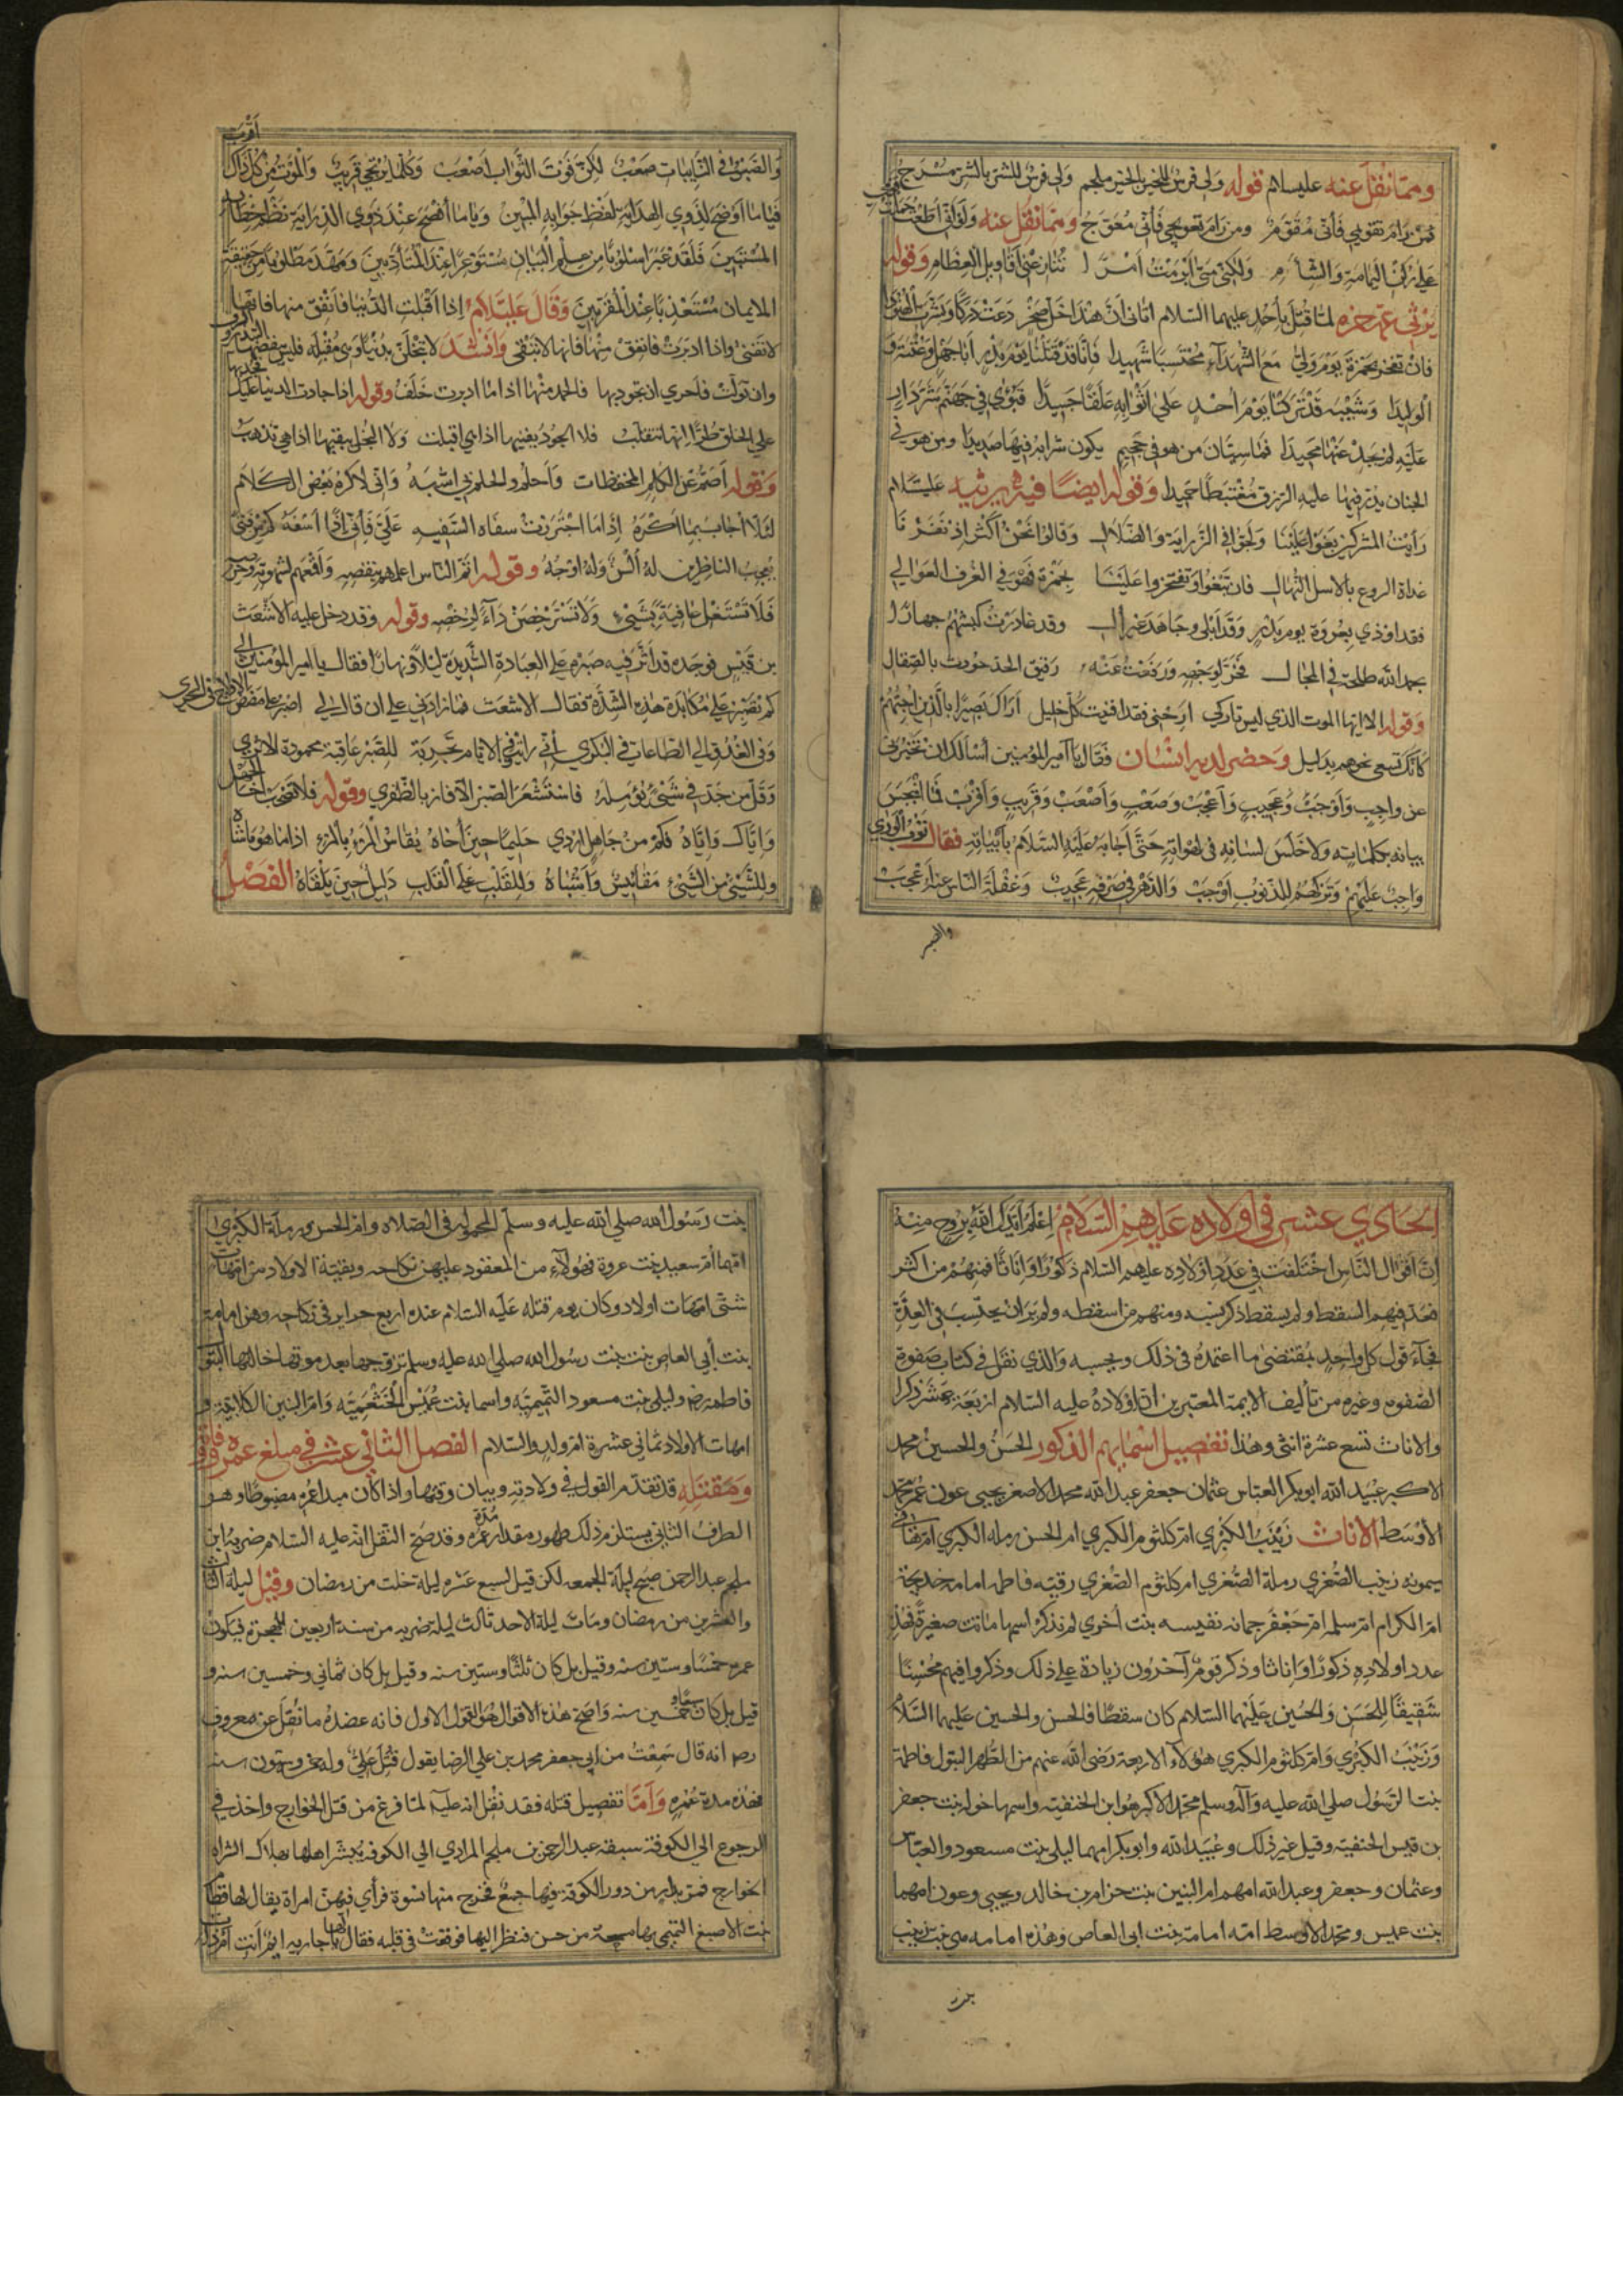 ومما نقل عنه عليه السلام قوله ولي فرس للخير بالخير ملجم ولي فرس للشر بالشر مسرج
فمن رام تقويمي فأني مقوم ومن رام تعويجي فأني معوج ومما نقل عنه ولو أني أطعت
علي ركن اليمامة والشأم ولكني متي أبرمت أمرا تنازعني أقاويل الطغام وقوله
يرثي عمه حمزه لما قتل بأحد عليهما السلام اتاني ان هندا اخت صخر دعت دركا وبشرت الهنودا
فان تفخر بحمزة يوم ولي مع الشهداء محتسبا شهيدا فانا قد قتلنا يوم بدر أبا جهل وعتبة و
الوليدا وشيبه قد تركنا يوم احد علي اثوابه علقا جسيدا فبوئ في جهنم شر دار
عليه لم يجد عنها محيدا فما سيان من هو في جحيم يكون شرابه فيها صديدا ومن هو في
الجنان يدر فيها عليه الرزق مغتبطا حميدا وقوله ايضا فيه يرثيه عليه السلام
رأيت المشركين بغوا علينا ولجوا في الزراية والضلال وقالوا نحن أكثر اذ نفرنا
غداة الروع بالاسل النهال فان تبغوا وتفتخروا علينا بحمزة فهو في الغرف العوالي
فقد اوذي بعروة يوم بدر وقد ابلي وجاهد غير ال وقد غادرت كبشهم جهارا
بحمد الله طلحة في المجال فخر لوجهه ورفعت عنه رقيق الحد حودث بالصقال
وقوله الا ايها الموت الذي ليس تاركي ارحني فقد افنيت كل خليل اراك بصيرا بالذين احبهم
كأنك تسعي نحوهم بدليل وحضر لديه انسان فقال يا امير المؤمنين أسألك ان تخبرني
عن واجب وأوجب وعجيب وأعجب وصعب وأصعب وقريب وأقرب فما انبجس
بيانه بكلماته ولا خلس لسانه في لهواته حتي أجابه عليه السلام بأبياته فقال توب الوري
واجب عليهم وتركهم للذنوب اوجب والدهر في صرفه عجيب وغفلة الناس عنه أعجب
والصبر
أقرب
والصبر في النايبات صعب لكن فوت الثواب اصعب وكلما يرتجي قريب والموت من كل ذاك
فياما اوضح لذوي الهدايه بلفظ جوابه المبين وياما أفصح عند ذوي الدراية نظم خطابه
المستبين فلقد عبر اسلوبا من علم البيان مستوعرا عند المتأدبين ومهد مطلوبا من حقيقة
الايمان مستعذبا عند المقربين وقال عليه السلام إذا اقبلت الدنيا فانفق منها فانها
لا تفني واذا ادبرت فانفق منها فانها لا تبقي وانشد لا تبخلن بدنيا وهي مقبله فليس ينقصها
وان تولت فاحري ان تجود بها فالحمد منها اذا ما ادبرت خلف وقوله اذا جادت الدنيا عليك
علي الخلق طرا انها تتقلب فلا الجود يفنيها اذا هي اقبلت ولا البخل يبقيها اذا هي تذهب
وقوله أصم عن الكلم المحفظات وأحلم والحلم بي اشبه واني لاكره بعض الكلام
لئلا أجاب بما اكره إذا ما اجتررت سفاه السفيه علي فأني اذا اسفه كم من فتي
يعجب الناظرين له ألسن وله اوجه وقوله
فلا تستغل عافية بشيء ولا تسترخصن داء لرخصه وقوله وقد دخل عليه الاشعث
بن قيس فوجده قد أثر فيه صبره علي العبادة الشديدة ليلا ونهارا فقال يا امير المؤمنين الي
كم تصبر علي مكابدة هذه الشدة فقال الاشعث فما زادني علي ان قال لي اصبر علي مضض
وفي الغدو الي الطاعات في البكر اني رايت في الايام تجربة للصبر عاقبة محمودة الاثر
وقل من جد في شيء يؤمله فاستشعر الصبر الا فاز بالظفر وقوله فلا تصحب اخا الجهل
واياك واياه فكم من جاهل اردي حليما حين آخاه يقاس المرء بالمرء اذا ما هو ماشاه
وللشيء من الشيء مقاييس وأشباه وللقلب علي القلب دليل حين يلقاه الفصل
الحادي عشر في أولاده عليهم السلام إعلم ايدك الله بروح منه
ان اقوال الناس اختلفت في عدد اولاده عليهم السلام ذكورا واناثا فمنهم من اكثر
فعد فيهم السقط ولم يسقط ذكر نسبه ومنهم من اسقطه ولم ير ان يحتسب في العدة
فجاء قول كل واحد بمقتضي ما اعتمده في ذلك وبحسبه والذي نقل في كتاب صفوة
الصفوه وغيره من تأليف الايمة المعتبرين ان اولاده عليه السلام اربعة عشر ذكرا
والاناث تسع عشرة انثي وهذا تفصيل اسمايهم الذكور الحسن والحسين محمد
الاكبر عبيد الله ابوبكر العباس عثمان جعفر عبد الله محمد الاصغر يحيي عون عمر محمد
الأوسط الاناث زينب الكبري ام كلثوم الكبري ام الحسن رمله الكبري ام هاني
ميمونه زينب الصغري رملة الصغري ام كلثوم الصغري رقيه فاطمه امامه خديجة
ام الكرام ام سلمه ام جعفر جمانه نفيسه بنت أخري لم نذكر اسمها ماتت صغيرة فهذ
عدد اولاده ذكورا واناثا وذكر قوم آخرون زيادة علي ذلك وذكروا فيهم محسنا
شقيقا للحسن والحسين عليهما السلام كان سقطا فالحسن والحسين عليهما السلام
وزينب الكبري وام كلثوم الكبري هؤلاء الاربعة رضي الله عنهم من الطهر البتول فاطمة
بنت الرسول صلي الله عليه وآله وسلم محمد الاكبر هو ابن الحنفيه واسمها خوله بنت جعفر
بن قيس الحنفية وقيل غير ذلك وعبيد الله وابوبكر امهما ليلي بنت مسعود والعباس
وعثمان وجعفر وعبد الله امهم ام البنين بنت حزام بن خالد ويحيي وعون امهما
بنت عميس ومحمد الاوسط امه امامة بنت ابي العاص وهذه امامه هي بنت زينب
بنت
بنت رسول الله صلي الله عليه وسلم المحموله في الصلاه وام الحسن ورملة الكبري
امهما أم سعيد بنت عروة فهؤلاء من المعقود عليهن نكاحه وبقية الاولاد من امهات
شتي امهات اولاد وكان يوم قتله عليه السلام عنده اربع حراير في نكاحه وهن امامه
بنت أبي العاص بنت بنت رسول الله صلي الله عليه وسلم تزوجها بعد موت خالتها البتول
فاطمه رضه وليلي بنت مسعود التميميه واسما بنت عميس الخثعميه وام البنين الكلابية و
امهات الاولاد ثماني عشرة ام ولد والسلام الفصل الثاني عشر في مبلغ عمره ووفاته
ومقتله قد تقدم القول في ولادته وبيان وقتها واذا كان مبدا عمره مضبوطا وهو
الطرف الثاني يستلزم ذلك ظهور مقدار مدة عمره وقد صح النقل انه عليه السلام ضربه ابن
ملجم عبد الرحمن صبح ليلة الجمعه لكن قيل لسبع عشره ليلة خلت من رمضان وقيل ليلة
والعشرين من رمضان ومات ليلة الاحد ثالث ليله ضربه من سنة اربعين للهجرة فيكون
عمره خمسا وستين سنه وقيل بل كان ثلثا وستين سنه وقيل بل كان ثماني وخمسين سنه و
قيل بل كان سبعا وخمسين سنه واصح هذه الاقوال هو القول الاول فانه عضده ما نقل عن معروف
رضه انه قال سمعت من ابي جعفر محمد بن علي الرضا يقول قتل علي وله خمس وستون سنه
فهذه مدة عمره وأما تفصيل قتله فقد نقل انه عليه لما فرغ من قتل الخوارج واخذ في
الرجوع الي الكوفة سبقه عبد الرحمن بن ملجم المرادي الي الكوفه يبشر اهلها بهلاك الشراه
الخوارج فمر بدار من دور الكوفة فيها جمع فخرج منها نسوة فرأي فيهن امراة يقال لها قطام
بنت الاصبغ التميمي بها مسحة من حسن فنظر اليها فوقعت في قلبه فقال لها يا جاريه ايم أنت ام ذات